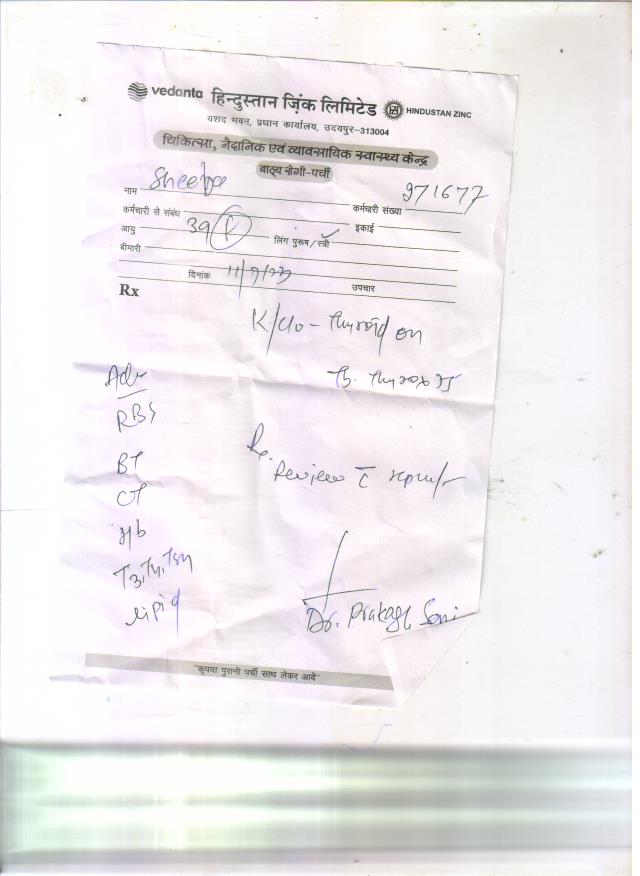 vedanta हिन्दुस्तान ज़िंक लिमिटेड HINDUSTAN ZINC
यशद भवन, प्रधान कार्यालय, उदयपुर–313004
चिकित्सा, नैदानिक एवं व्यावसायिक स्वास्थ्य केन्द्र
बाह्य रोगी-पर्ची
नाम Sheeba 971677
कर्मचारी से संबंध कर्मचारी संख्या
आयु 39 F लिंग पुरूष/स्त्री इकाई
बीमारी
दिनांक 11/9/23 उपचार
Rx
K/c/o - thyroid on
Adv
RBS
BT
CT
Hb
T3, T4, TSH
lipid
Review c̄
Dr. Prakash Soni
"कृपया पुरानी पर्ची साथ लेकर आवें"